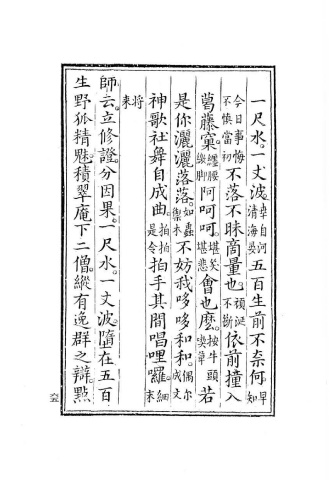 一尺水。一丈波。幸自河清海晏五百生前不奈何早知
今日事悔不慎當初不落不昧商量也。頑涎不斷依前撞入
葛藤窠。纏腰縈脚阿呵呵。堪笑堪悲會也麽。按牛頭喫草若
是你灑灑落落。如蟲禦木不妨我哆哆和和。偶尔成文
神歌社舞自成曲。拍拍是令拍手其間唱哩囉。細末
將來
師云。立修證。分因果。一尺水。一丈波。墮在五百
生野狐精魅。積翠庵下二僧。縱有逸群之辯。點
六五